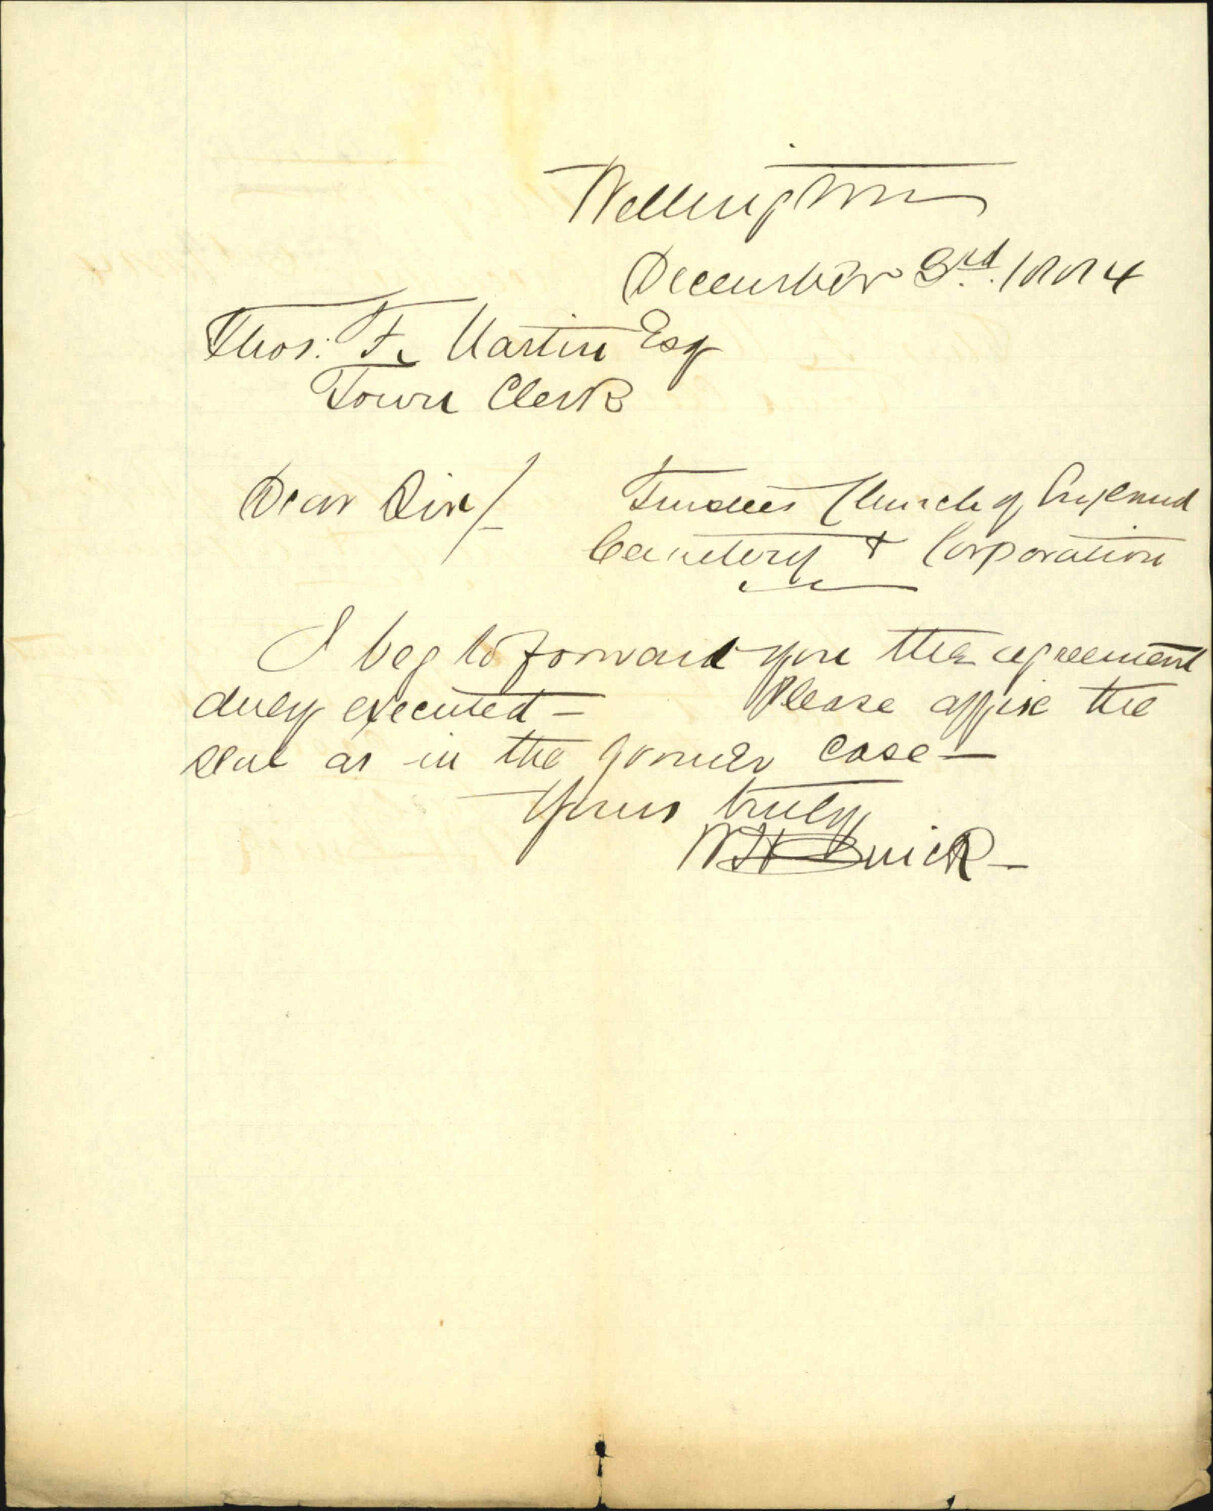 Wellington
December 3rd. 1884
Thos: F. Martin Esq
Town Clerk
Dear Sir/- Trustees Church of England
Cemetery & Corporation
I beg to forward you the agreement
duly executed - Please affix the
seal as in the former case -
Yours truly
W H Quick -